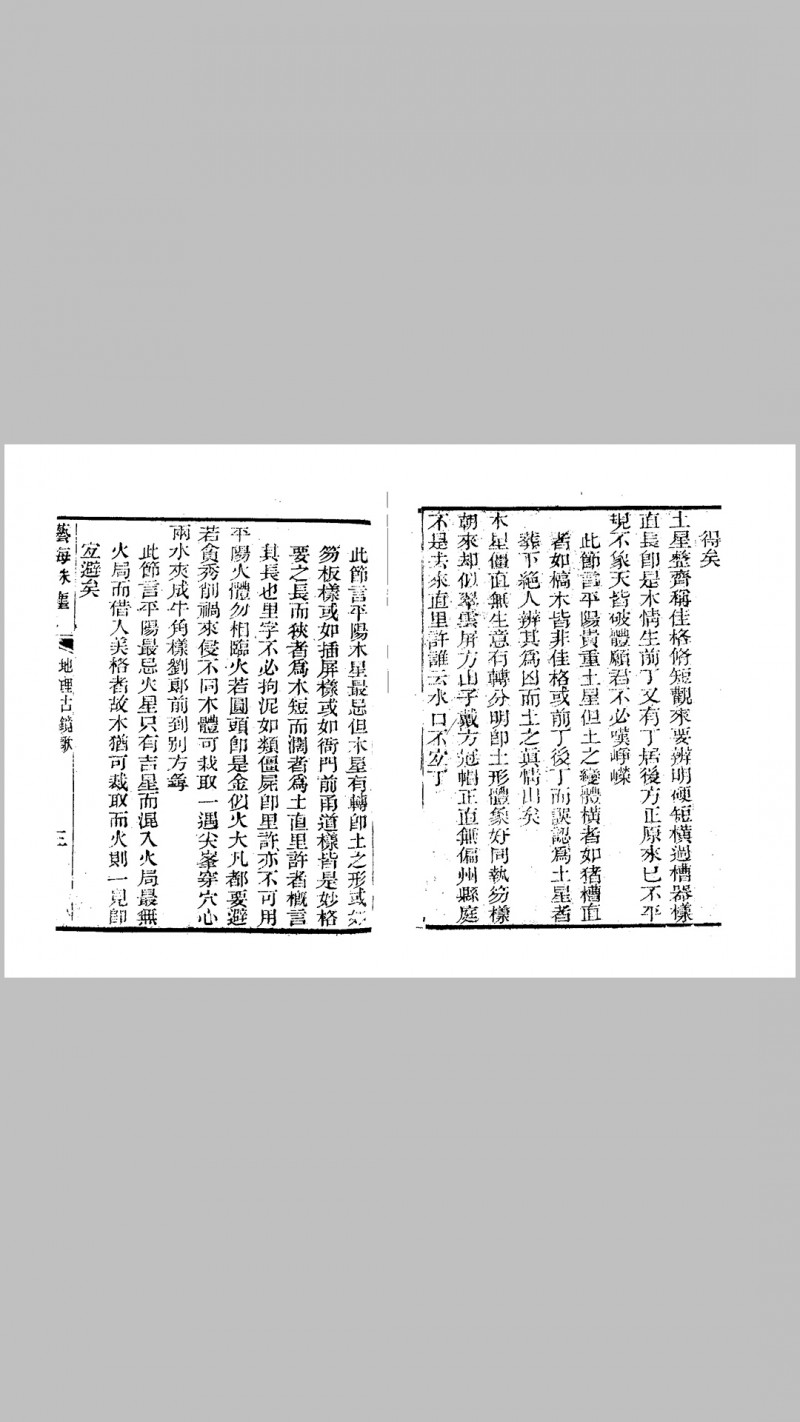 得矣
土星整齊稱佳格脩短觀來要辨明硬短橫過槽器樣
直長卽是木情生前丁又有丁居後方正原來已不平
現不象天皆破體願君不必嘆崢嶸
此節言平陽貴重土星但土之變體橫者如猪槽直
者如槁木皆非佳格或前丁後丁而誤認爲土星者
葬下絕人辨其爲凶而土之眞情出矣
木星僵直無生意有轉分明卽土形體象好同執笏樣
朝來却似翠雲屏方山子戴方冠帽正直無偏州縣庭
不是去來直里許誰云水口不宜丁
此節言平陽木星最忌但木星有轉卽土之形或如
笏板樣或如插屏樣或如衙門前甬道樣皆是妙格
要之長而狹者爲木短而濶者爲土直里許者概言
其長也里字不必拘泥如類僵屍卽里許亦不可用
平陽火體勿相臨火若圓頭卽是金似火大凡都要避
若貪秀削禍來侵不同木體可裁取一遇尖峯穿穴心
兩水夾成牛角樣劉郞前到別方尋
此節言平陽最忌火星只有吉星而混入火局最無
火局而借入美格者故木猶可裁取而火則一見卽
宜避矣
藝海珠塵 地理古鏡歌 三